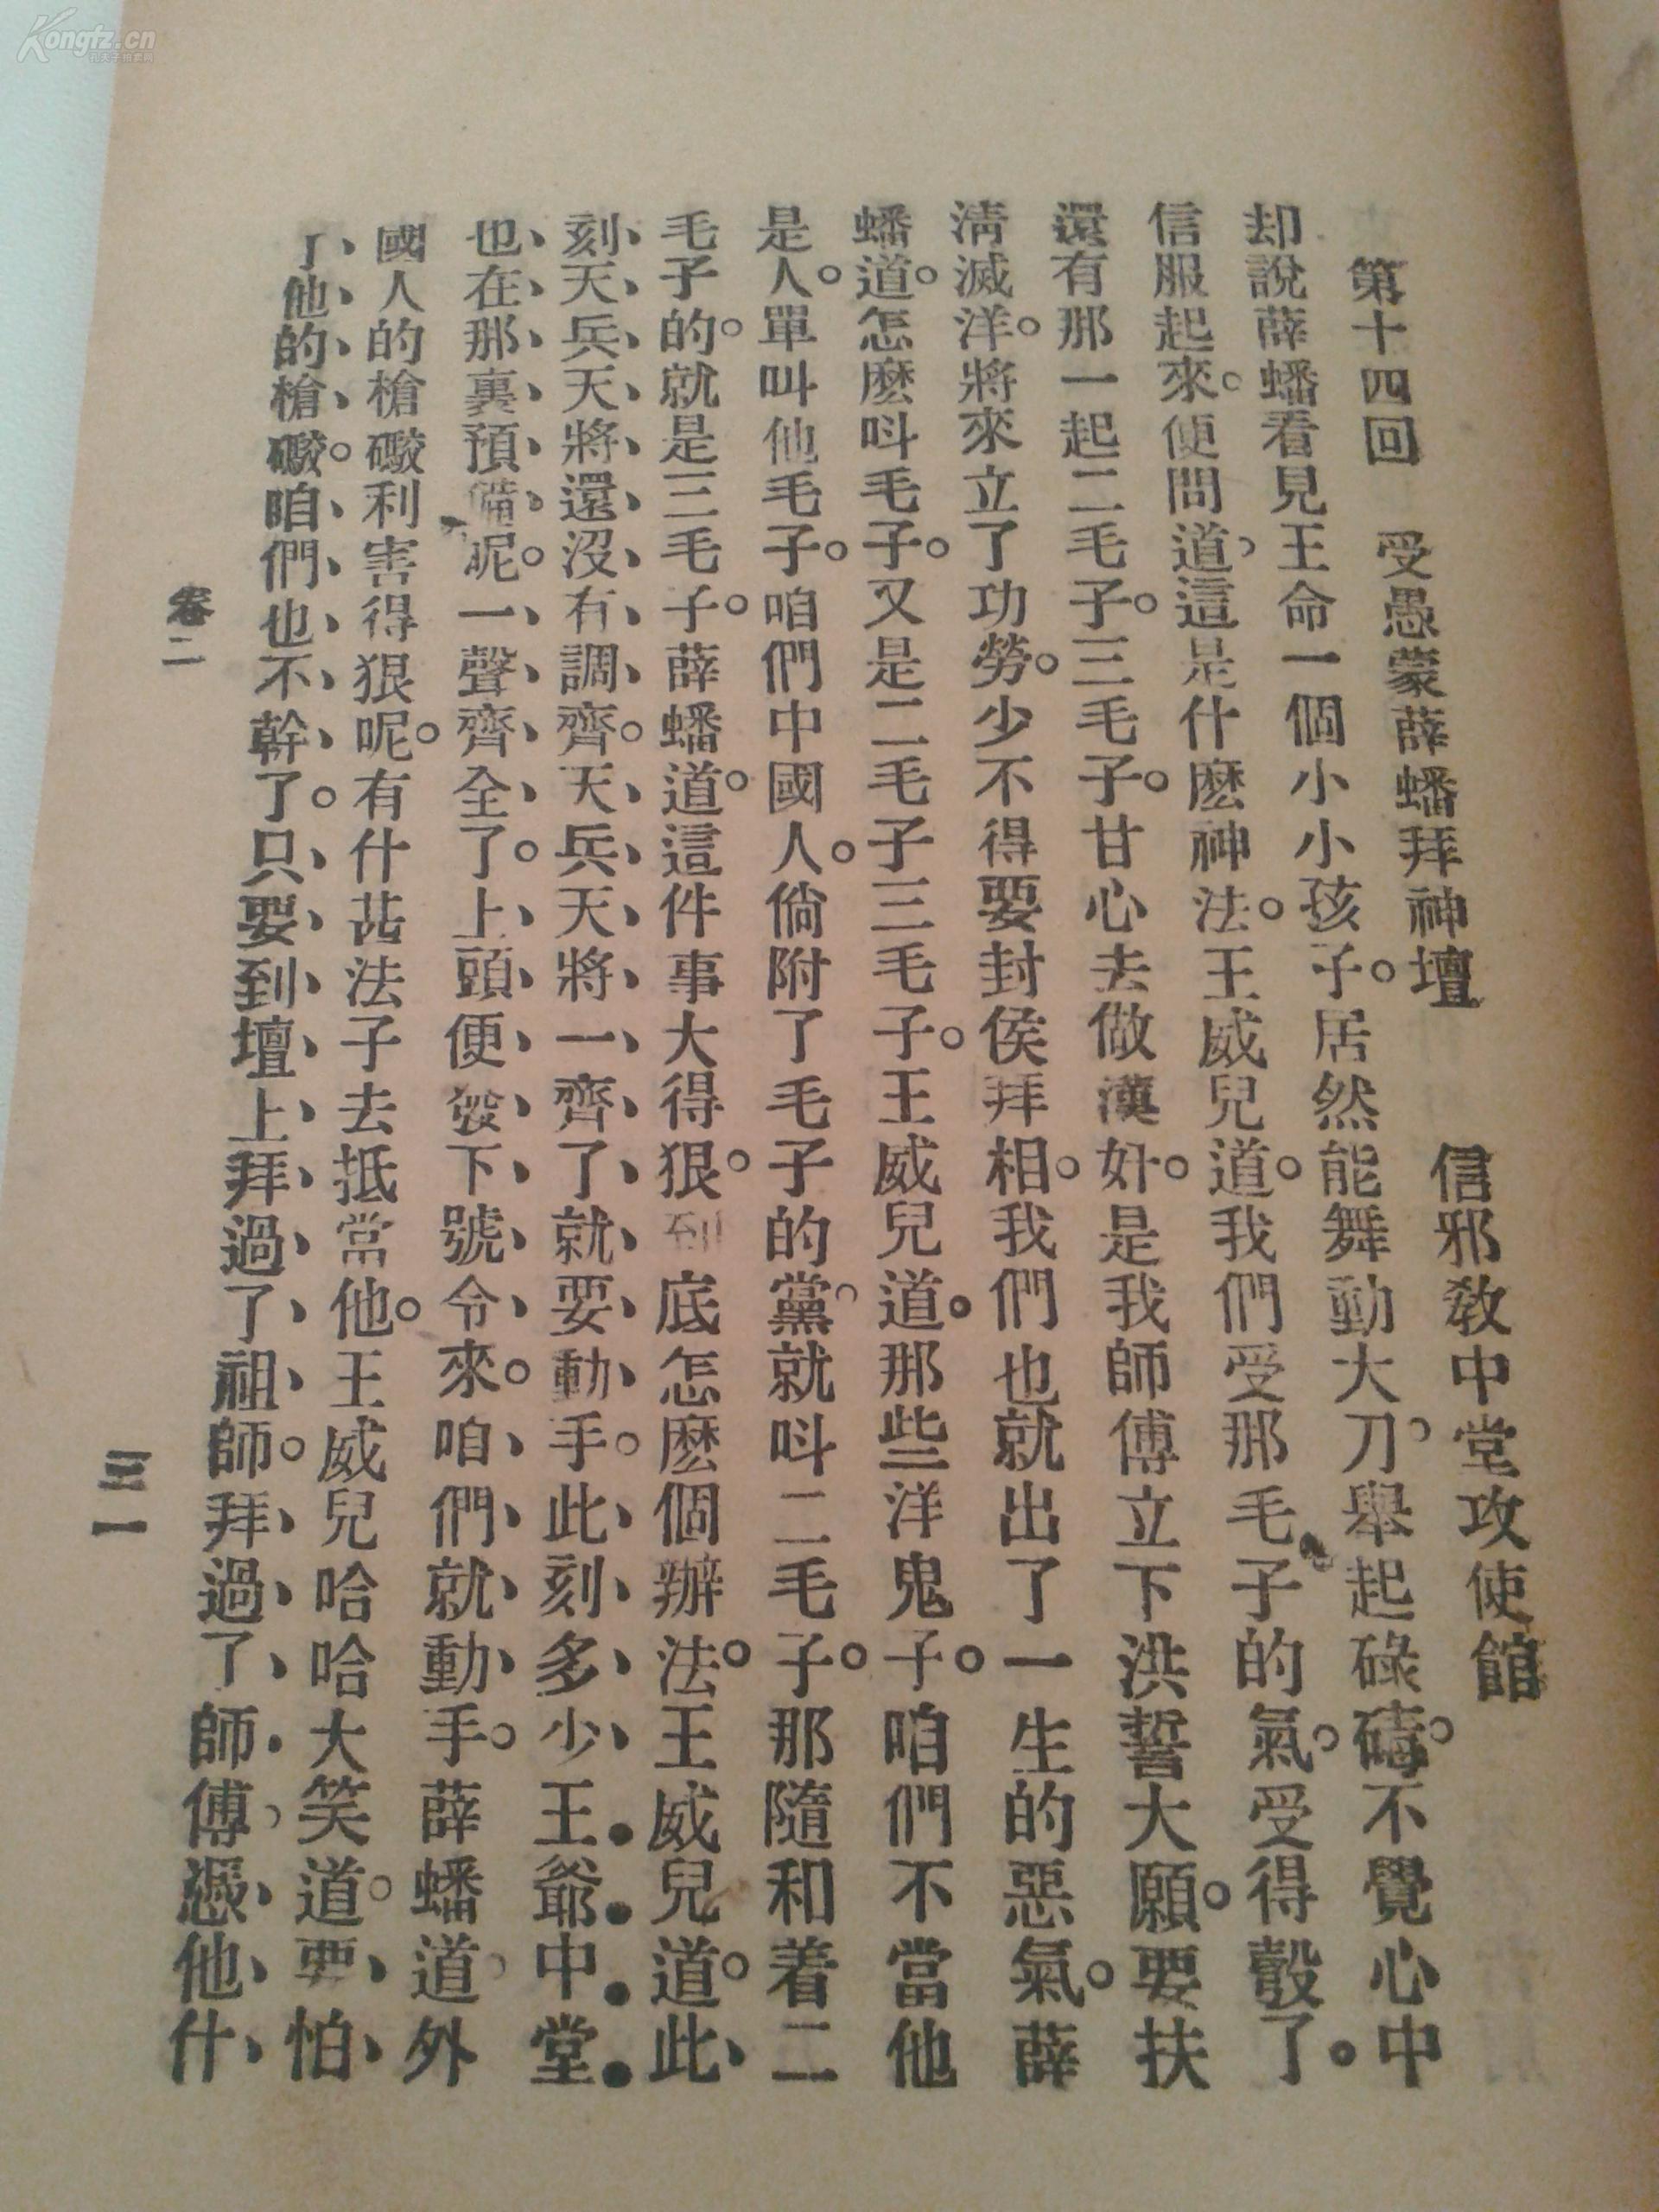 Kongfz.cn
第十四回 受愚蒙薛蟠拜神壇 信邪敎中堂攻使館
却說薛蟠看見王命一個小小孩子。居然能舞動大刀、舉起碌碡。不覺心中
信服起來。便問道、這是什麽神法。王威兒道。我們受那毛子的氣。受得彀了。
還有那一起二毛子。三毛子。甘心去做漢奸。是我師傅立下洪誓大願。要扶
淸滅洋。將來立了功勞。少不得要封侯拜相。我們也就出了一生的惡氣。薛
蟠道。怎麽呌毛子。又是二毛子三毛子。王威兒道。那些洋鬼子。咱們不當他
是人。單叫他毛子。咱們中國人。倘附了毛子的黨、就呌二毛子。那隨和着二
毛子的。就是三毛子。薛蟠道。這件事大得狠。到底怎麽個辦法。王威兒道。此
刻天兵天將還沒有調齊。天兵天將一齊了就要動手。此刻多少王爺中堂
也在那裏預備呢。一聲齊全了。上頭便發下號令來。咱們就動手。薛蟠道、外
國人的槍礮利害得狠呢。有什甚法子去抵當他。王威兒哈哈大笑道。要怕
了他的槍礮。咱們也不幹了。只要到壇上拜過了祖師。拜過了師傅、憑他什
卷二
三一